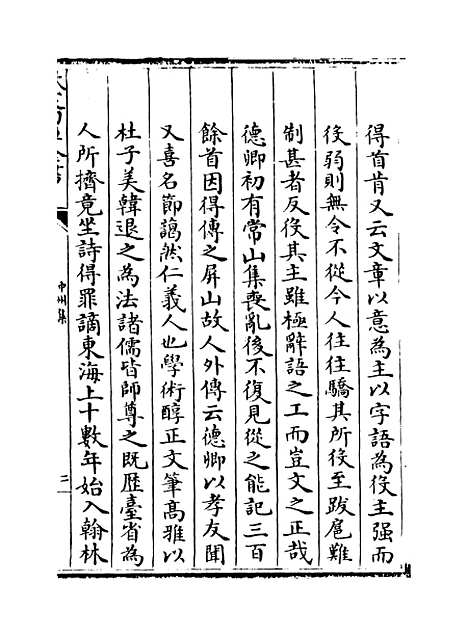 得首肯又云文章以意為主以字語為役主强而
役弱則無令不從今人往往驕其所役至跋扈難
制甚者反役其主雖極辭語之工而豈文之正哉
德卿初有常山集喪亂後不復見從之能記三百
餘首因得傳之屏山故人外傳云德卿以孝友聞
又喜名節藹然仁義人也學術醇正文筆髙雅以
杜子美韓退之為法諸儒皆師尊之既歴臺省為
人所擠竟坐詩得罪謫東海上十數年始入翰林
中州集